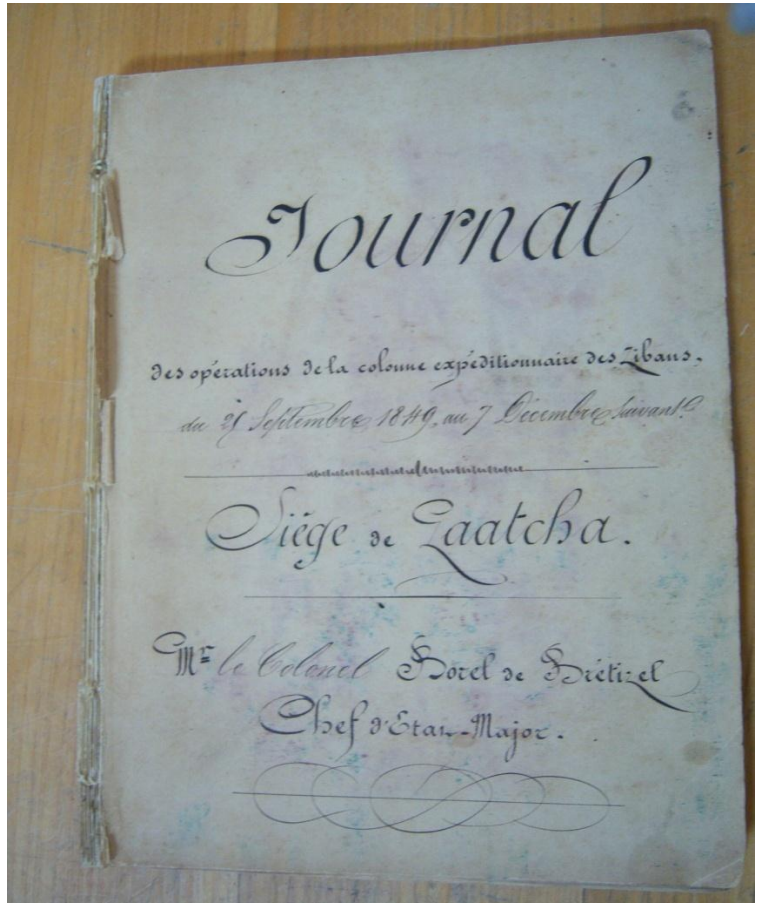 Journal
des opérations de la colonne expéditionnaire des Zibans.
du 21 Septembre 1849, au 7 Décembre suivant
Siège de Zaatcha.
Mr le Colonel Borel de Brétizel
Chef d'Etat-Major.